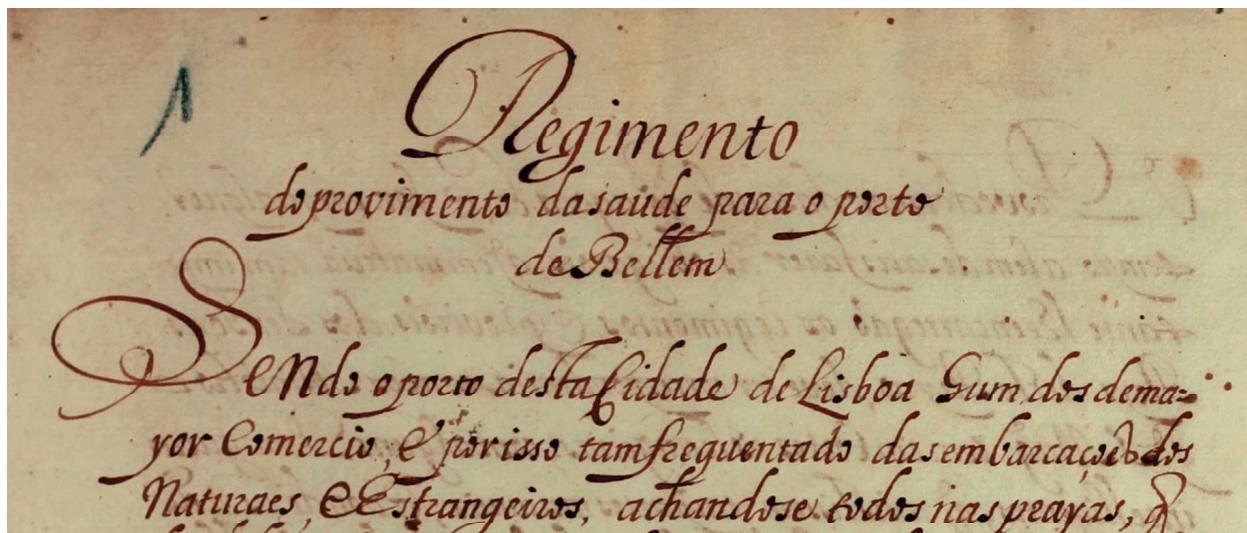 1
Regimento
do provimento da saude para o porto
de Bellem
Sendo o porto desta Cidade de Lisboa hum dos de ma-
yor Comercio, e por isso tam frequentado das embarcações dos
Naturaes, e Estrangeiros, achandose todos nas prayas, q